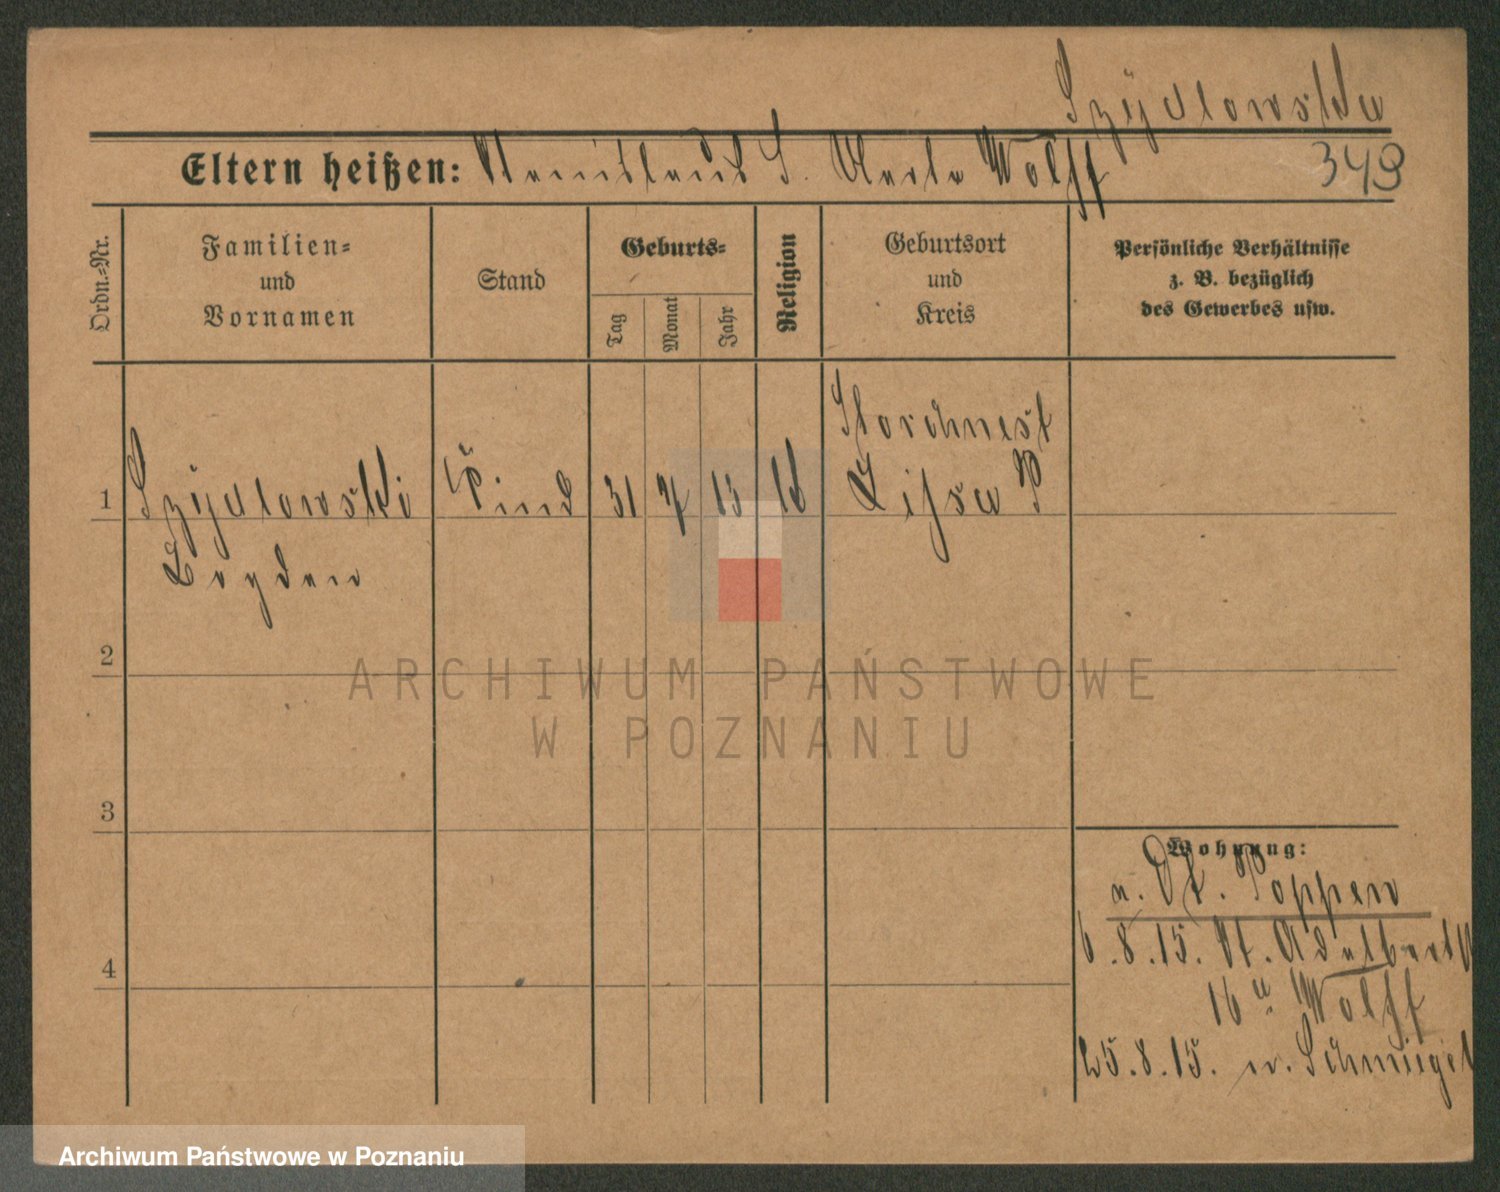 Szydlowska
Eltern heißen: Stanislaus S. Maria Wolff
349
Ordn.-Nr.
Familien-
und
Vornamen
Stand
Geburts-
Tag
Monat
Jahr
Religion
Geburtsort
und
Kreis
Persönliche Verhältnisse
z. B. bezüglich
des Gewerbes usw.
1
Szydlowski
Bogdan
Kind
31
7
15
Storchnest
Lissa P
2
ARCHIWUM PAŃSTWOWE
W POZNANIU
3
Wohnung:
Poppen
6.8.15. St. Adalbert
16 Wolff
4
25.8.15. n. Schmiegel
Archiwum Państwowe w Poznaniu